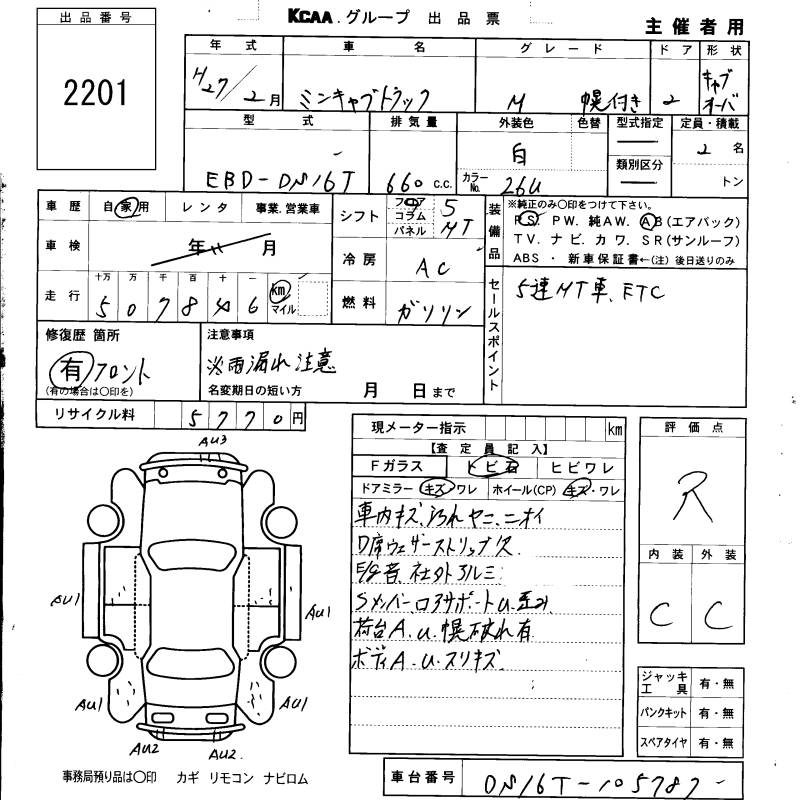 出品番号
2201
KCAA.グループ 出品票
主催者用
年式 車名 グレード ドア 形状
H27/2月 ミニキャブトラック M 幌付き 2 キャブオーバ
型式 排気量 外装色 色替 型式指定 定員・積載
EBD-DS16T 660 c.c. 白 2名
カラーNo. 26U 類別区分 トン
車歴 自家用 レンタ 事業.営業車
シフト フロア コラム パネル 5 MT
装備品 ※純正のみ〇印をつけて下さい。
PS. PW. 純AW. AB(エアバック)
TV. ナビ. カワ. SR(サンルーフ)
ABS ・ 新車保証書←(注) 後日送りのみ
車検 年 月
冷房 AC
走行 十万 万 千 百 十 一 km マイル
507846
燃料 ガソリン
セールスポイント
5速MT車、ETC
修復歴 箇所
有 フロント
(有の場合は〇印を)
注意事項
※雨漏れ注意
名変期日の短い方 月 日まで
リサイクル料 5770円
現メーター指示 km
【査定員記入】
Fガラス トビ石 ヒビワレ
ドアミラー キズ・ワレ ホイール(CP) キズ・ワレ
車内キズ、汚れ ヤニ、ニオイ
D席ウェザーストリップ欠
E/g音、社外アルミ
Sメンバー、コアサポートU、歪み
荷台A.U.幌破れ有
ボディA.U.スリキズ
評価点
R
内装 外装
C C
AU3
AU1
AU1
AU1
AU1
AU2
AU2.
ジャッキ工具 有・無
パンクキット 有・無
スペアタイヤ 有・無
事務局預り品は〇印 カギ リモコン ナビロム
車台番号 DS16T-105787